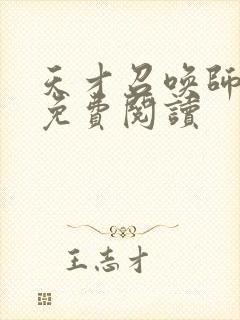 天才召唤師
免費閱讀
王志才